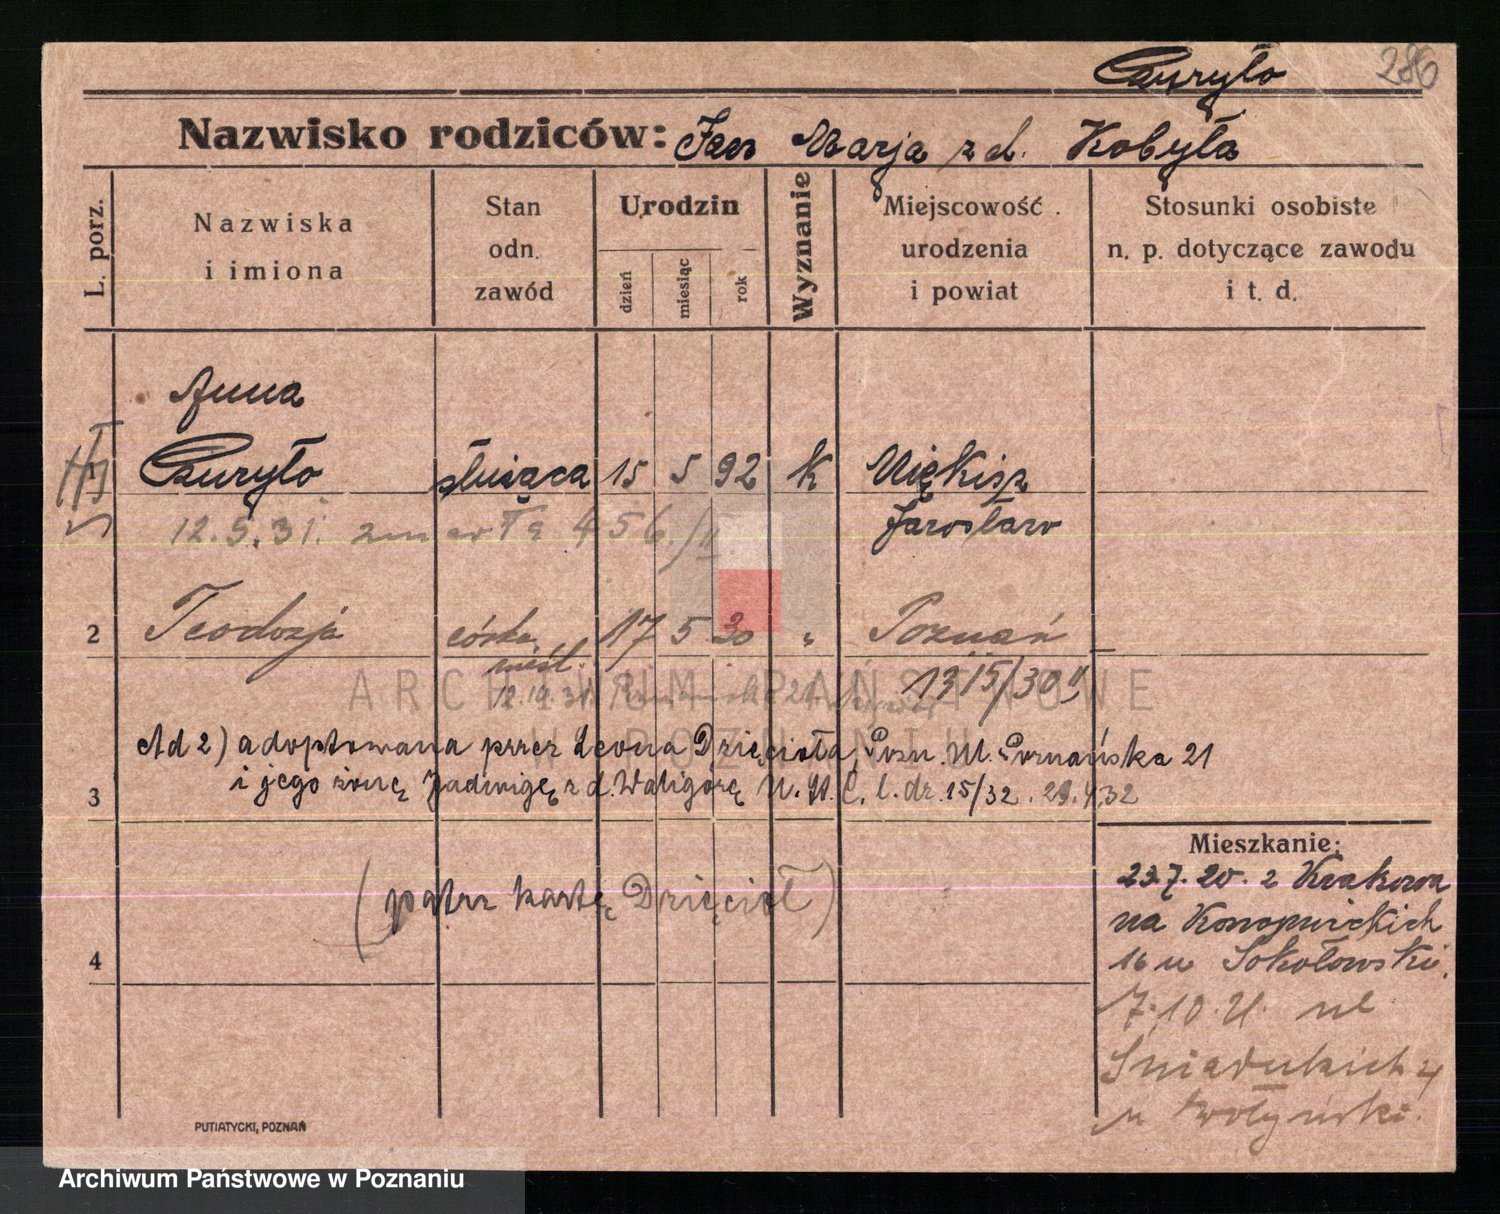 Czuryło
286
Nazwisko rodziców: Jan Marja z d. Kobyla
L. porz.
Nazwiska
i imiona
Stan
odn.
zawód
Urodzin
dzień
miesiąc
rok
Wyznanie
Miejscowość
urodzenia
i powiat
Stosunki osobiste
n. p. dotyczące zawodu
i t. d.
Anna
1 Czuryło służąca 15 5 92 k Miękisz
Jarosław
12.5.31. zmarła 456./II.
2 Teodozja córka 17 5 30 " Poznań
nieśl. 1315/30 II
12.10.31.
Ad 2) adoptowana przez Leona Dzięcioła, Pozn. M. Poznańska 21
i jego żonę Jadwigę z d. Waligórę U. St. C. l. dz. 15/32. 29.4.32
3
(patrz kartę Dzięcioł)
4
Mieszkanie:
23.7.20. z Krakowa
na Konopnickich
16 u Sokołowski.
7.10.21. ul
Śniadeckich 4
u Wołyński.
PUTIATYCKI, POZNAŃ
ARCHIWUM PAŃSTWOWE
W POZNANIU
Archiwum Państwowe w Poznaniu